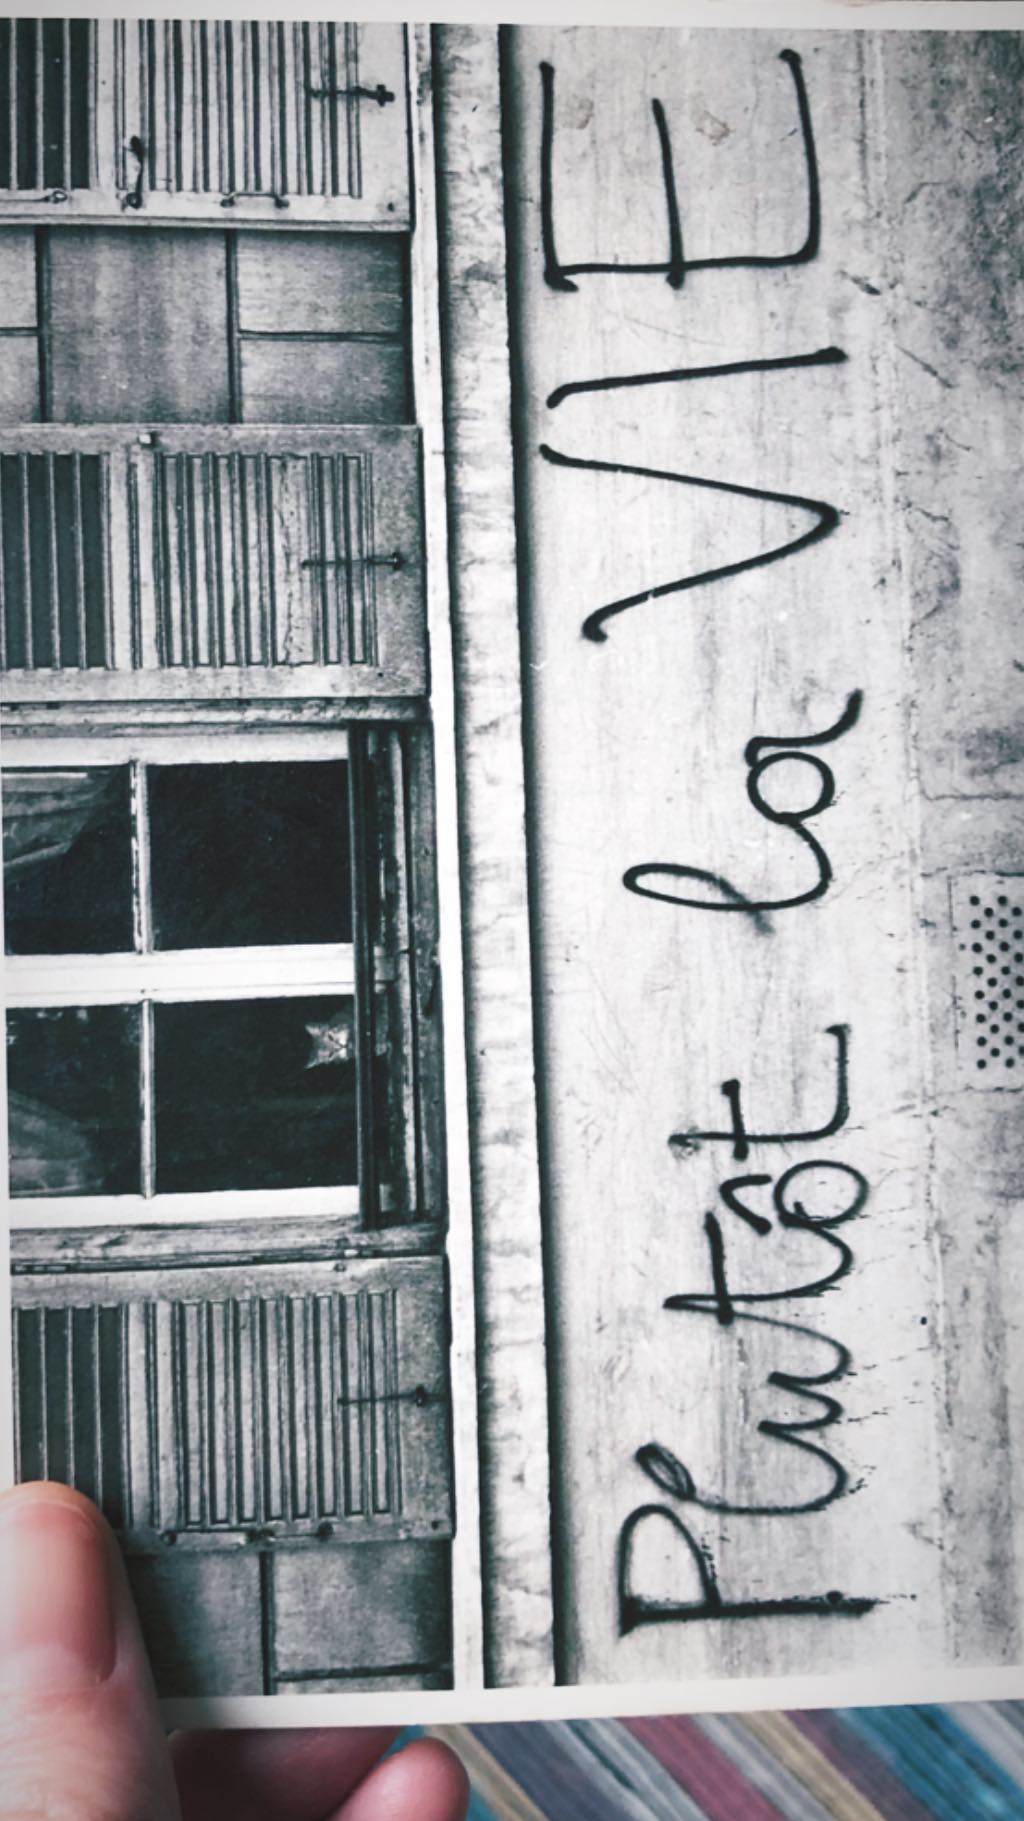 Plutôt la VIE